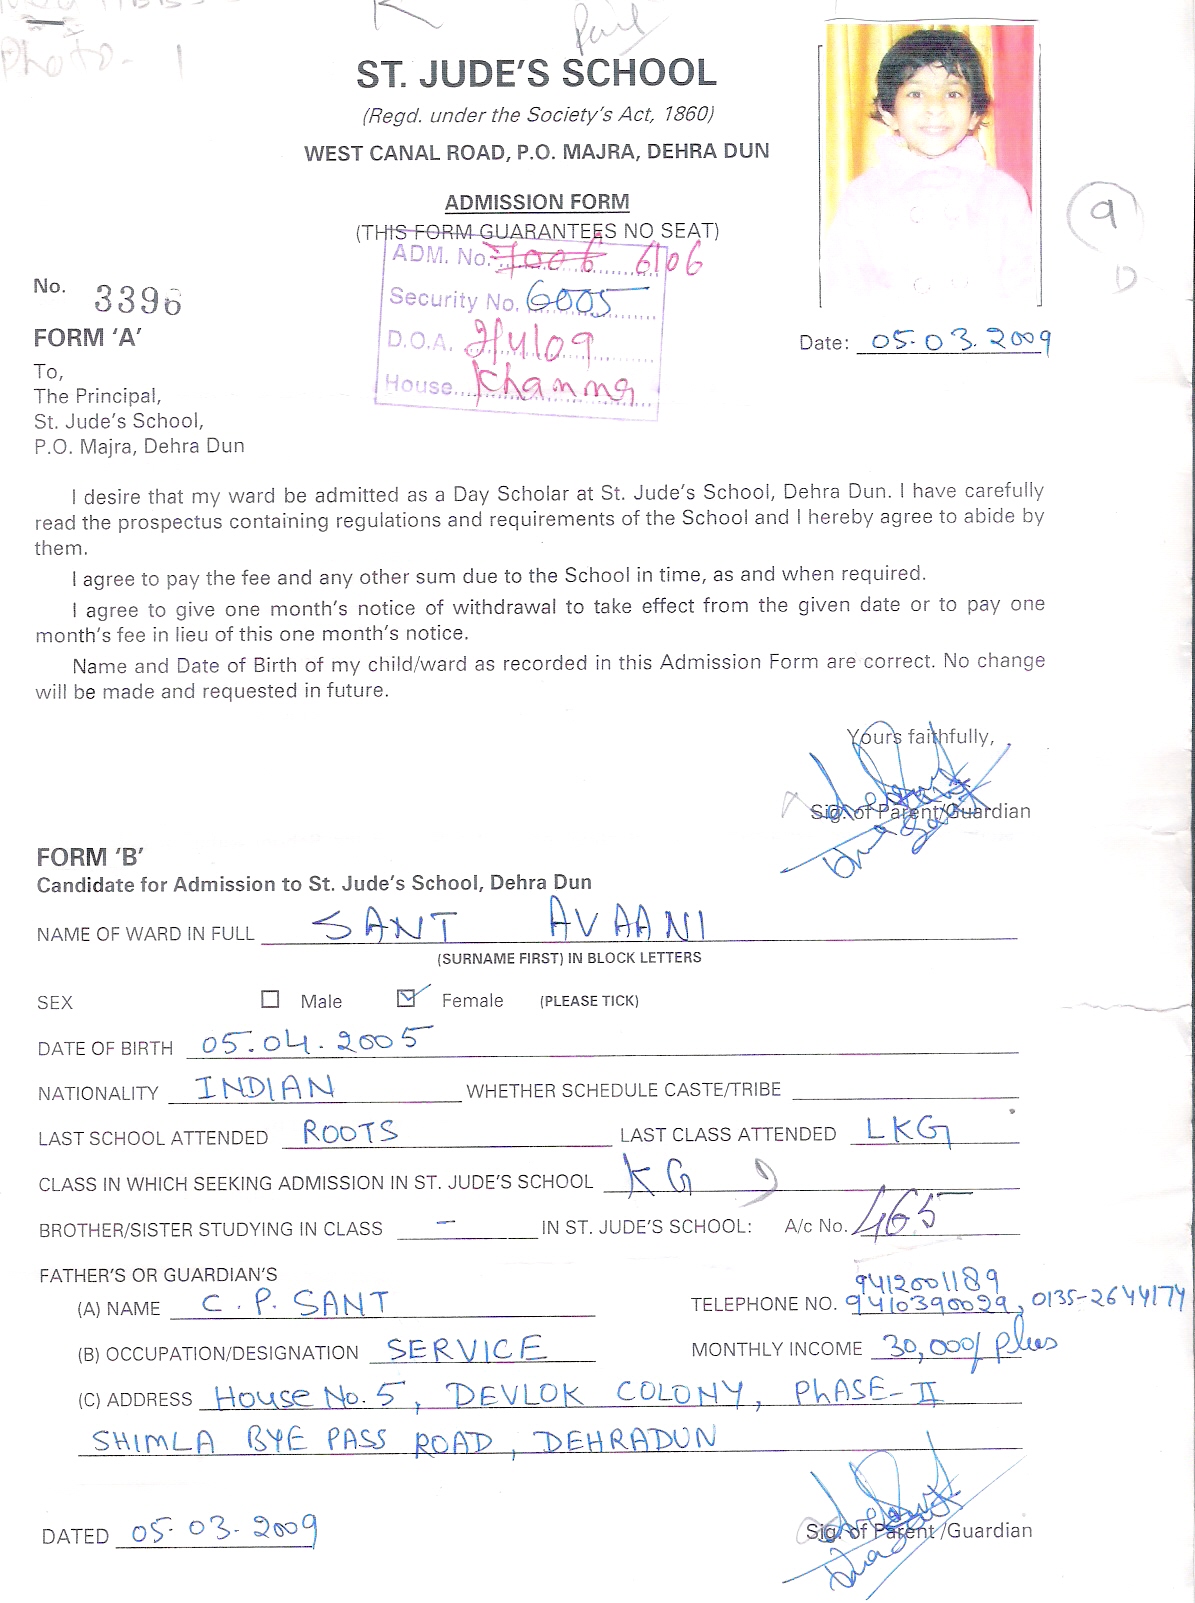 Photo- 1
Paid
ST. JUDE'S SCHOOL
(Regd. under the Society's Act, 1860)
WEST CANAL ROAD, P.O. MAJRA, DEHRA DUN
ADMISSION FORM
(THIS FORM GUARANTEES NO SEAT)
ADM. No. 7006 6106
Security No. 6005
D.O.A. 2/4/09
House Khanna
9
D
No. 3396
FORM 'A'
Date: 05.03.2009
To,
The Principal,
St. Jude's School,
P.O. Majra, Dehra Dun
I desire that my ward be admitted as a Day Scholar at St. Jude's School, Dehra Dun. I have carefully
read the prospectus containing regulations and requirements of the School and I hereby agree to abide by
them.
I agree to pay the fee and any other sum due to the School in time, as and when required.
I agree to give one month's notice of withdrawal to take effect from the given date or to pay one
month's fee in lieu of this one month's notice.
Name and Date of Birth of my child/ward as recorded in this Admission Form are correct. No change
will be made and requested in future.
Yours faithfully,
Sig. of Parent/Guardian
FORM 'B'
Candidate for Admission to St. Jude's School, Dehra Dun
NAME OF WARD IN FULL SANT AVAANI
(SURNAME FIRST) IN BLOCK LETTERS
SEX Male Female (PLEASE TICK)
DATE OF BIRTH 05.04.2005
NATIONALITY INDIAN WHETHER SCHEDULE CASTE/TRIBE
LAST SCHOOL ATTENDED ROOTS LAST CLASS ATTENDED LKG
CLASS IN WHICH SEEKING ADMISSION IN ST. JUDE'S SCHOOL KG
BROTHER/SISTER STUDYING IN CLASS - IN ST. JUDE'S SCHOOL: A/c No. 465
FATHER'S OR GUARDIAN'S
9412001189
(A) NAME C.P. SANT TELEPHONE NO. 9410390029, 0135-2644174
(B) OCCUPATION/DESIGNATION SERVICE MONTHLY INCOME 30,000/ plus
(C) ADDRESS House No. 5, DEVLOK COLONY, PhASE-II
SHIMLA BYE PASS ROAD, DEHRADUN
DATED 05.03.2009
Sig. of Parent/Guardian